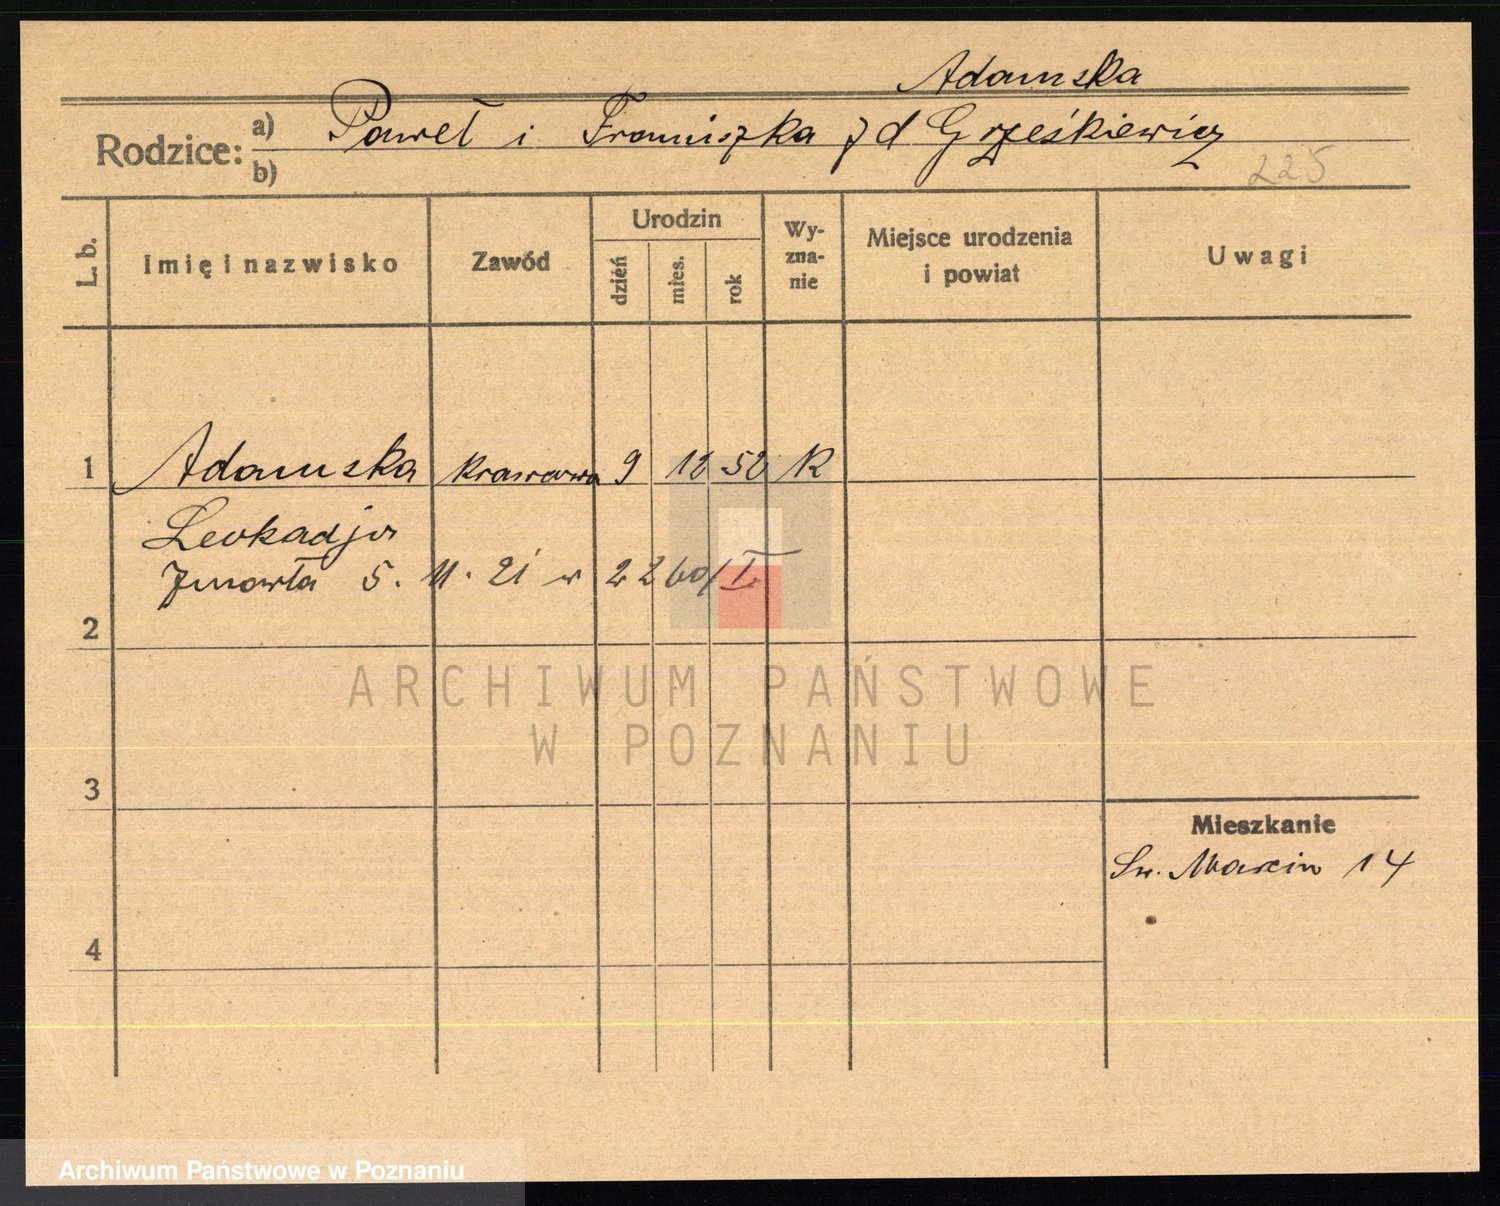 Adamska
Rodzice: a) Paweł i Franciszka z d Grześkiewicz
b)
225
L. b. Imię i nazwisko Zawód Urodzin dzień mies. rok Wy-zna-nie Miejsce urodzenia i powiat Uwagi
1 Adamska krawcowa 9 12 52 K
Leokadja
Zmarła 5. 11. 21 w
2
ARCHIWUM PAŃSTWOWE
W POZNANIU
3
Mieszkanie
Św. Marcin 14
4
Archiwum Państwowe w Poznaniu